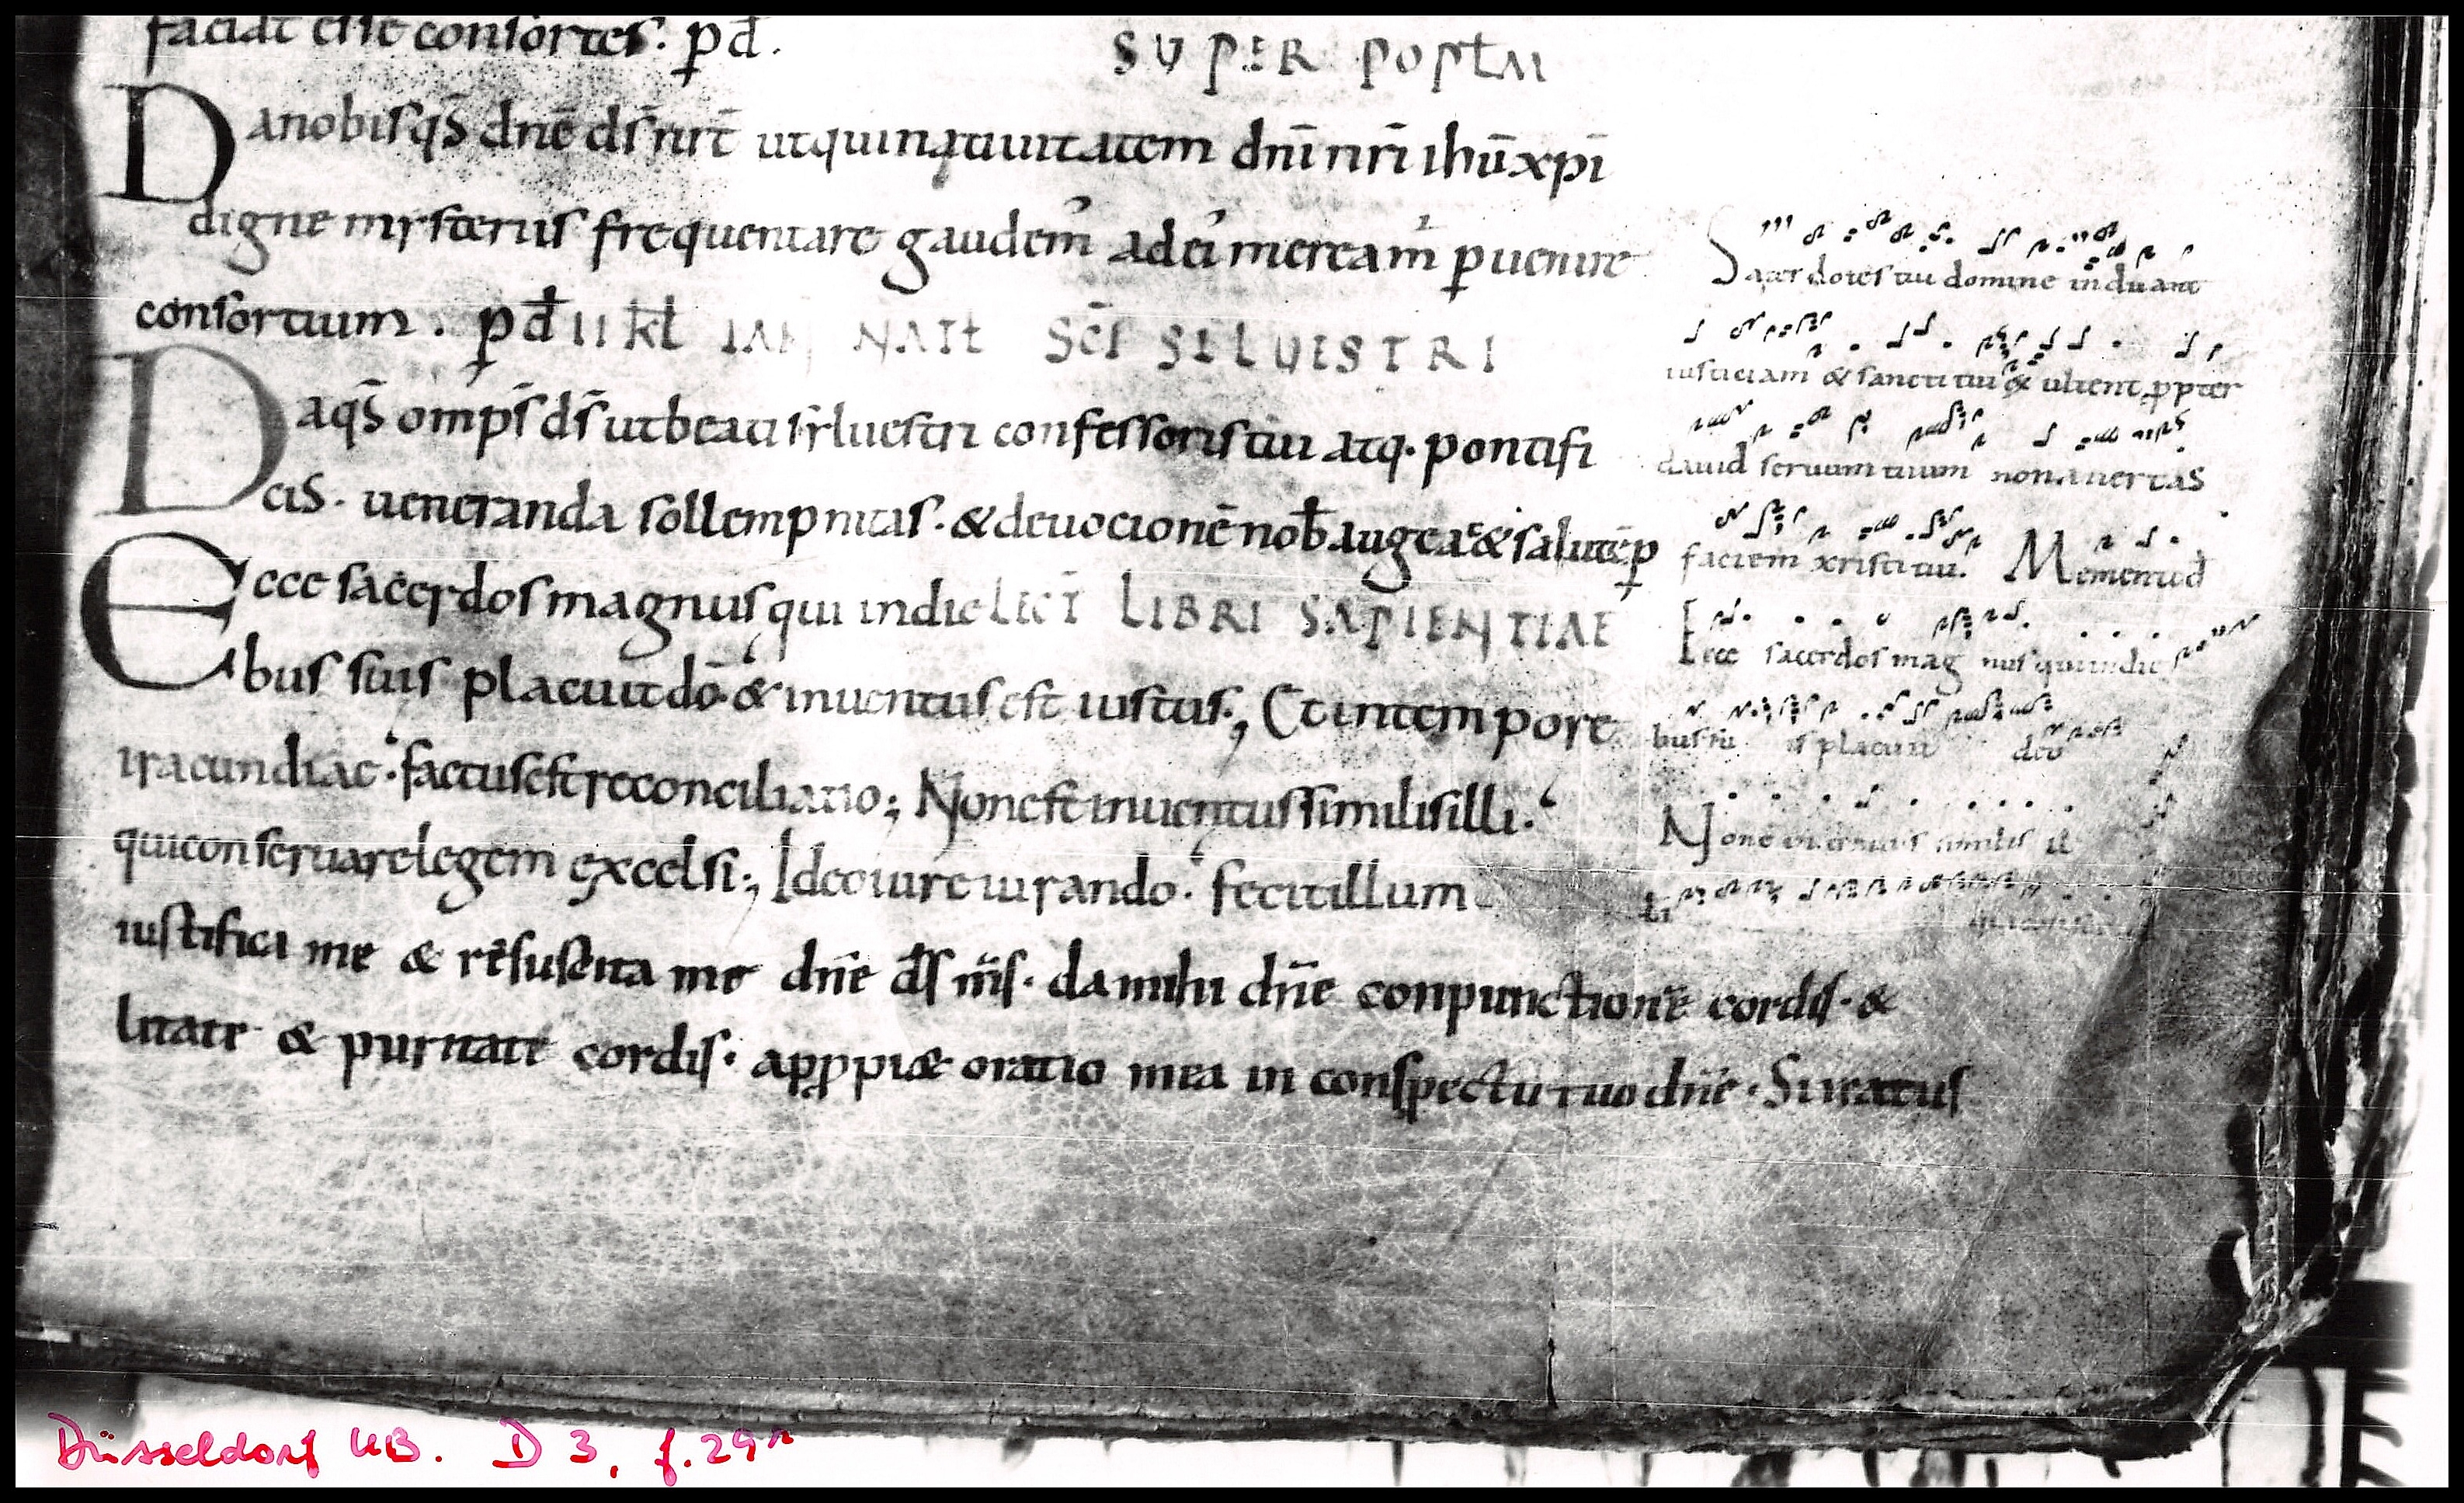 faciat esse consortes. p̄ d̄.
SUPER POPŁM
Da nobis qs̄ dnē ds̄ nr̄t utquinatiuitatem dnī nrī ihū xpī
digne mysteriis frequentare gaudem̄ adei meream̄ ꝑuenire
consortium. ꝑ d̄ II kł IAN NATł SCĪ SILUESTRI
Da qs̄ omps̄ ds̄ utbeati sẏluestri confessoris tui atq. pontifi
cis. ueneranda sollempnitas. & deuocionē nob̄ augeat & salutē ꝑ
Ecce sacerdos magnus qui indie LECT̄ LIBRI SAPIENTIAE
bus suis placuit dō & inuentus est iustus; Et intempore
iracundiae. factusest reconciliatio; Nonest inuentus similis illi.
qui conseruaret legem excelsi; Ideo iureiurando. fecit illum
iustifica me & resuscita me dnē ds̄ ms̄. da mihi dnē conpunctionē cordis. &
litate & puritate cordis. apꝓpi& oratio mea in conspectu tuo dnē. Si reatus
Sacerdotes tui domine induant
iusticiam & sancti tui exultent ꝓpter
dauid seruum tuum non auertas
faciem xristi tui. Memento d̄
Ecce sacerdos mag nus qui indie
bus su is placuit deo
Non ē inuentus similis il
li
Düsseldorf UB. D 3, f. 29r